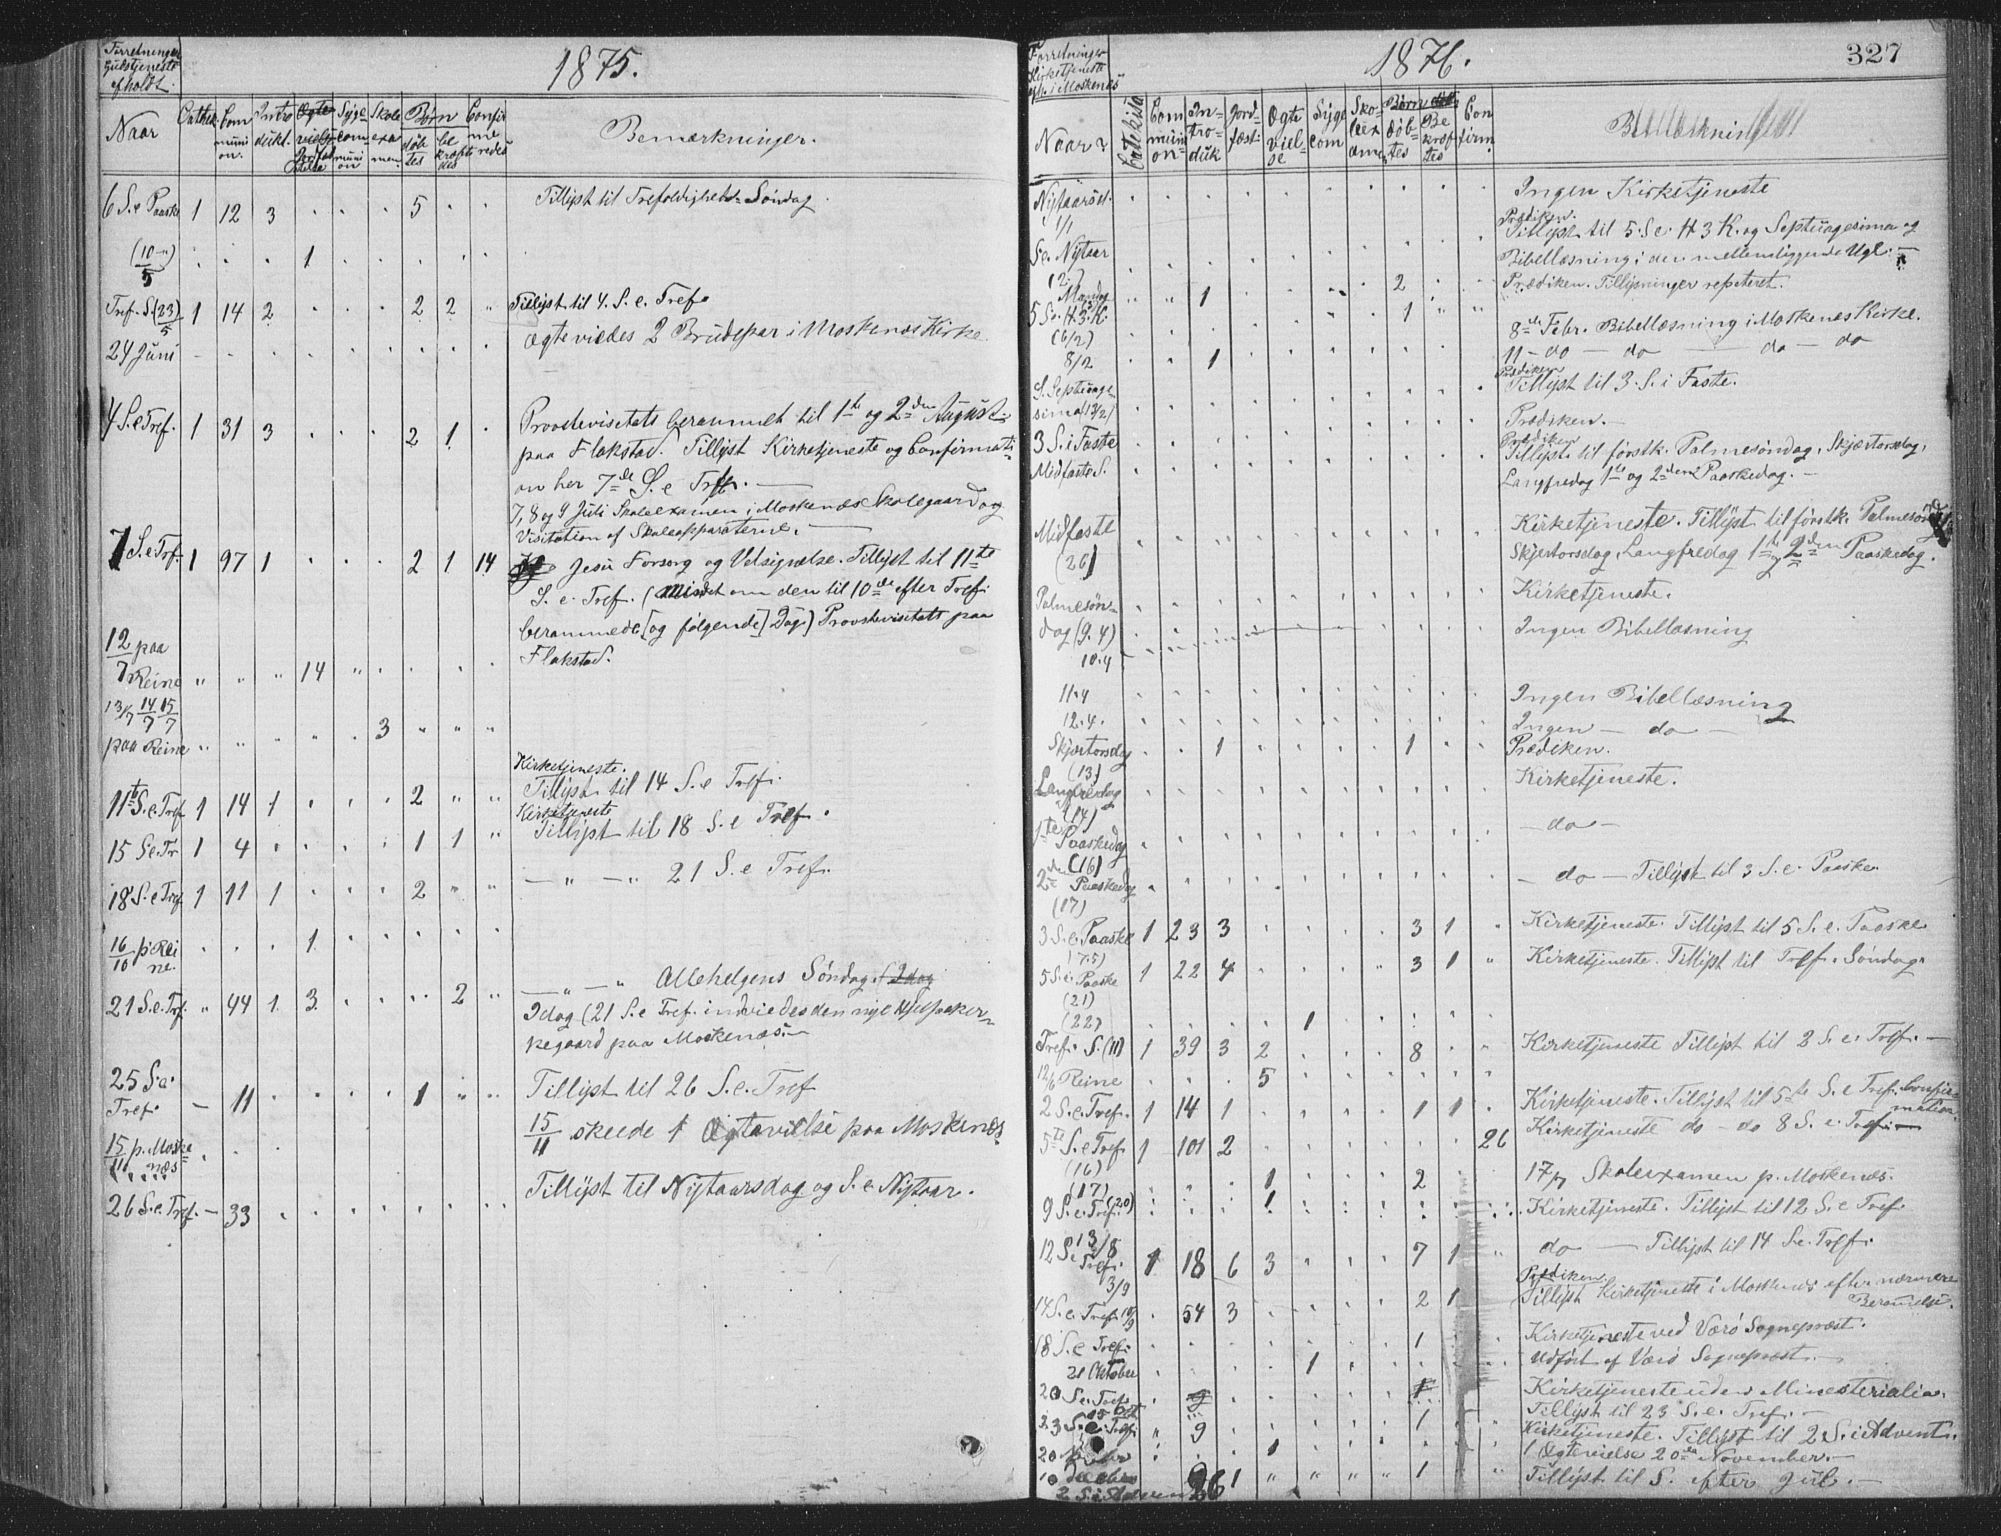 Forretninger
Gudstjeneste
afholdt.
1875.
Naar
Cathek
Com
muni
on.
Intro
dukt.
Ægte
vielse
Jordfæ
stelse
Syge
com
muni
on
Skole
exa
men.
Børn
døb
tes
be
kræfte
des
Confir
me
redes
Bemærkninger.
6 S. e Paaske 1 12 3 . . . 5 . . Tillyst til Trefoldigheds-Søndag.
(10/5) . . . 1 . . . . .
Tref. S. (23/5) 1 14 2 . . . 2 2 " Tillyst til 4. S. e. Tref.
24 Juni - . . . . . . . . Ægteviedes 2 Brudepar i Moskenæs Kirke.
4 S. e Tref. 1 31 3 . . . 2 1 . Provstevisitats berammet til 1ste og 2den August
paa Flakstad. Tillyst Kirketjeneste og Confirmati-
on her 7de S. e Tref. —
7, 8 og 9 Juli Skoleexamen i Moskenæs Skolegaard og
Visitation af Skoleapparaterne. —
7 S. e Tref. 1 97 1 . . . 2 1 14 Jesu Forsorg og Velsignelse. Tillyst til 11te
S. e. Tref. (Mindet om den til 10de efter Tref.
berammede [og følgende] Dag) Provstevisitats paa
Flakstad.
12/7 paa
Reine " " " 14 " . . . .
13/7 14/7 15/7
paa Reine " " " " " 3 " " "
11te S. e. Tref 1 14 1 . . . 2 " " Kirketjeneste.
Tillyst til 14 S. e Tref.
15 S. e. Tr 1 4 . . . . 1 1 " Kirketjeneste
Tillyst til 18 S. e Tref.
18 S. e Tref 1 11 1 . . . 2 " " — " — " 21 S. e Tref.
16/10 p. Rei
ne. . . . 1 . . . . .
21 S. e. Tref. " 44 1 3 . . . 2 " — " — " Allehelgens Søndag. (Idag
Idag (21 S. e Tref. indviedes den nye Hjelpekir-
kegaard paa Moskenæs. —
25 S. e.
Tref. — 11 . . . . 1 " " Tillyst til 26 S. e. Tref
15/11 p. Moske
næs . . . 15/11 skede 1 Ægtevielse paa Moskenæs
26 S. e. Tref. — 33 . . . . . . . Tillyst til Nytaarsdag og S. e Nytaar.
Forretninger
Kirketjeneste
i Moskenæs
1876.
327
Naar?
Catekisa
Com
muni
on-
In-
tro-
duk
Jord-
fæst-
Ægte
viel-
se
Syge
com
Sko-
leex
amen
Børn
døb-
tes
Be
kræf
tes
Con
firm.
Nytaarsd. 1/1 Ingen Kirketjeneste
S. e. Nytaar Prædiken.
Tillyst til 5. S. e. H 3 K. og Septuagesima og
Bibellæsning i den mellemliggende Uge. —
12/ Mandag " " 1 . . . 2 . . Prædiken. Tillysninger repeteret.
5 S. e. H. 3. K.
(6/2) . . . . . . 1 " " 8de Febr. Bibellæsning i Moskenæs Kirke.
8/2 . . 1 11 — do — do — do — do
S. Septuage-
sima (13/2) Prædiken
Tillyst til 3. S. i Faste.
3 S. i Faste Prædiken. —
Midfaste S. Prædiken
Tillyst til førstk. Palmesøndag, Skjærtorsdag,
Langfredag 1ste og 2den Paaskedag. —
Midfaste
(26) Kirketjeneste. Tillyst til førstk. Palmesønd
Skjærtorsdag, Langfredag 1ste 2den Paaskedag.
Palmesøn-
dag (9. 4) Kirketjeneste.
10.4 Ingen Bibellæsning
11.4 Ingen Bibellæsning
12.4. Ingen — do —
Skjærtorsdag
(13) . . 1 . . . 1 . . Prædiken.
Langfredag
(14) Kirketjeneste.
1ste Paaskedag
(16) — do —
2den Paaskedag
(17) — do — Tillyst til 3 S. e. Paaske
3 S. e. Paaske
(7.5) 1 23 3 . . . 3 1 " Kirketjeneste. Tillyst til 5 S. e. Paaske
5 S. e Paaske
(21) 1 22 4 . . . 3 1 " Kirketjeneste. Tillyst til Tref. Søndag.
(22) . . . . 1 . . .
Tref. S. (11) 1 39 3 2 . . 8 . . Kirketjeneste Tillyst til 2 S. e. Tref. —
12/6 Reine . . . 5 . . . . .
2 S. e. Tref. 1 14 1 . . . 1 1 . Kirketjeneste. Tillyst til 5te S. e Tref. Confir-
mation.
5te S. e Tref
(16) 1 101 2 . . . . . 26 Kirketjeneste do — do 8 S. e. Tref. —
(17) . . . 1 . . 2 17/7 Skoleexamen p. Moskenæs.
9 S. e. Tref. (20) . . . 1 . . . Kirketjeneste. Tillyst til 12 S. e Tref.
13/8
12 S. e
Tref. 1 18 6 3 . . 7 1 " do — Tillyst til 14 S. e. Tref.
3/9
14 S. e. Tref. 10/9 . 54 3 . . . 2 1 Prædiken.
Tillyst Kirketjeneste i Moskenæs efter nærmere
Berammelse.
18 S. e Tref. . . . . . . 1 Kirketjeneste ved Værø Sognepræst.
21 Oktober . . . . 1 Udført af Værø Sognepræst.
20 S. e. Tref . 9 . . . . 1 Kirketjeneste uden Ministerialia.
Tillyst til 23 S. e. Tref. —
23 S. e. Tref. " 9 . . . . 1 Kirketjeneste. Tillyst til 2 S. i Advent.
20 . . . 1 1 Ægtevielse 20de November. —
10
2 S. i Advent 26 1 " " " 1 " Tillyst til S. efter Jul. —